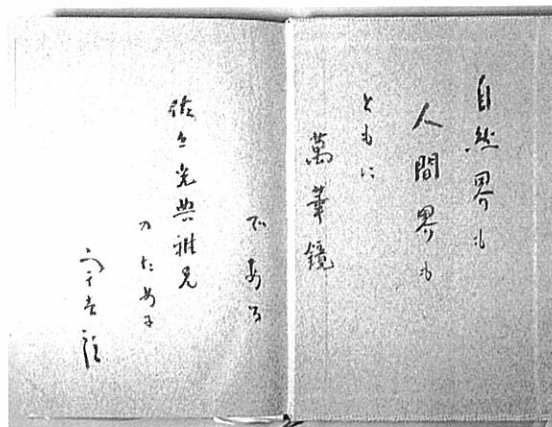 自然界も
人間界も
ともに
萬華鏡
である
典雅兄
のために